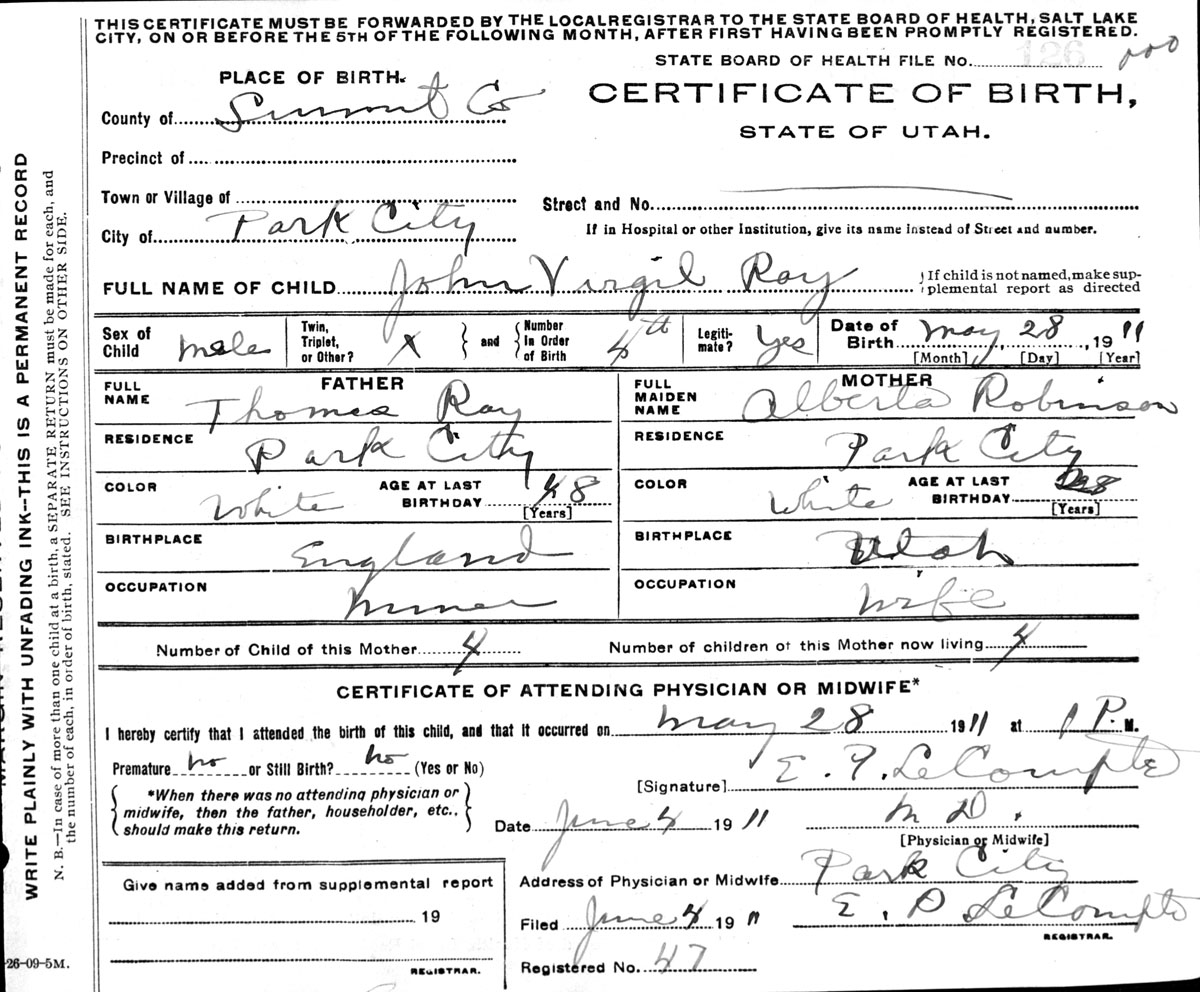 THIS CERTIFICATE MUST BE FORWARDED BY THE LOCAL REGISTRAR TO THE STATE BOARD OF HEALTH, SALT LAKE
CITY, ON OR BEFORE THE 5TH OF THE FOLLOWING MONTH, AFTER FIRST HAVING BEEN PROMPTLY REGISTERED.
STATE BOARD OF HEALTH FILE No. 126
PLACE OF BIRTH.
CERTIFICATE OF BIRTH,
STATE OF UTAH.
County of Summit Co
Precinct of
Town or Village of
Street and No.
City of Park City
If in Hospital or other Institution, give its name instead of Street and number.
FULL NAME OF CHILD John Virgil Ray
If child is not named, make supplemental report as directed
Sex of Child male Twin, Triplet, or Other? X and Number in Order of Birth 4th Legitimate? Yes Date of Birth May 28, 1911
[Month] [Day] [Year]
FATHER
FULL NAME Thomas Ray
RESIDENCE Park City
COLOR White AGE AT LAST BIRTHDAY 48
[Years]
BIRTHPLACE England
OCCUPATION Miner
MOTHER
FULL MAIDEN NAME Alberta Robinson
RESIDENCE Park City
COLOR White AGE AT LAST BIRTHDAY
[Years]
BIRTHPLACE Utah
OCCUPATION Wife
Number of Child of this Mother 4 Number of children of this Mother now living 4
CERTIFICATE OF ATTENDING PHYSICIAN OR MIDWIFE*
I hereby certify that I attended the birth of this child, and that it occurred on May 28 1911 at 1 P. M.
Premature no or Still Birth? no (Yes or No)
[Signature] E. P. LeCompte
*When there was no attending physician or
midwife, then the father, householder, etc.,
should make this return.
Date June 4 1911 M D.
[Physician or Midwife]
Give name added from supplemental report
19
REGISTRAR.
Address of Physician or Midwife Park City
Filed June 4 1911 E. P LeCompte
REGISTRAR.
Registered No. 47
26-09-5M.
WRITE PLAINLY WITH UNFADING INK--THIS IS A PERMANENT RECORD
N. B.—In case of more than one child at a birth, a SEPARATE RETURN must be made for each, and
the number of each, in order of birth, stated. SEE INSTRUCTIONS ON OTHER SIDE.